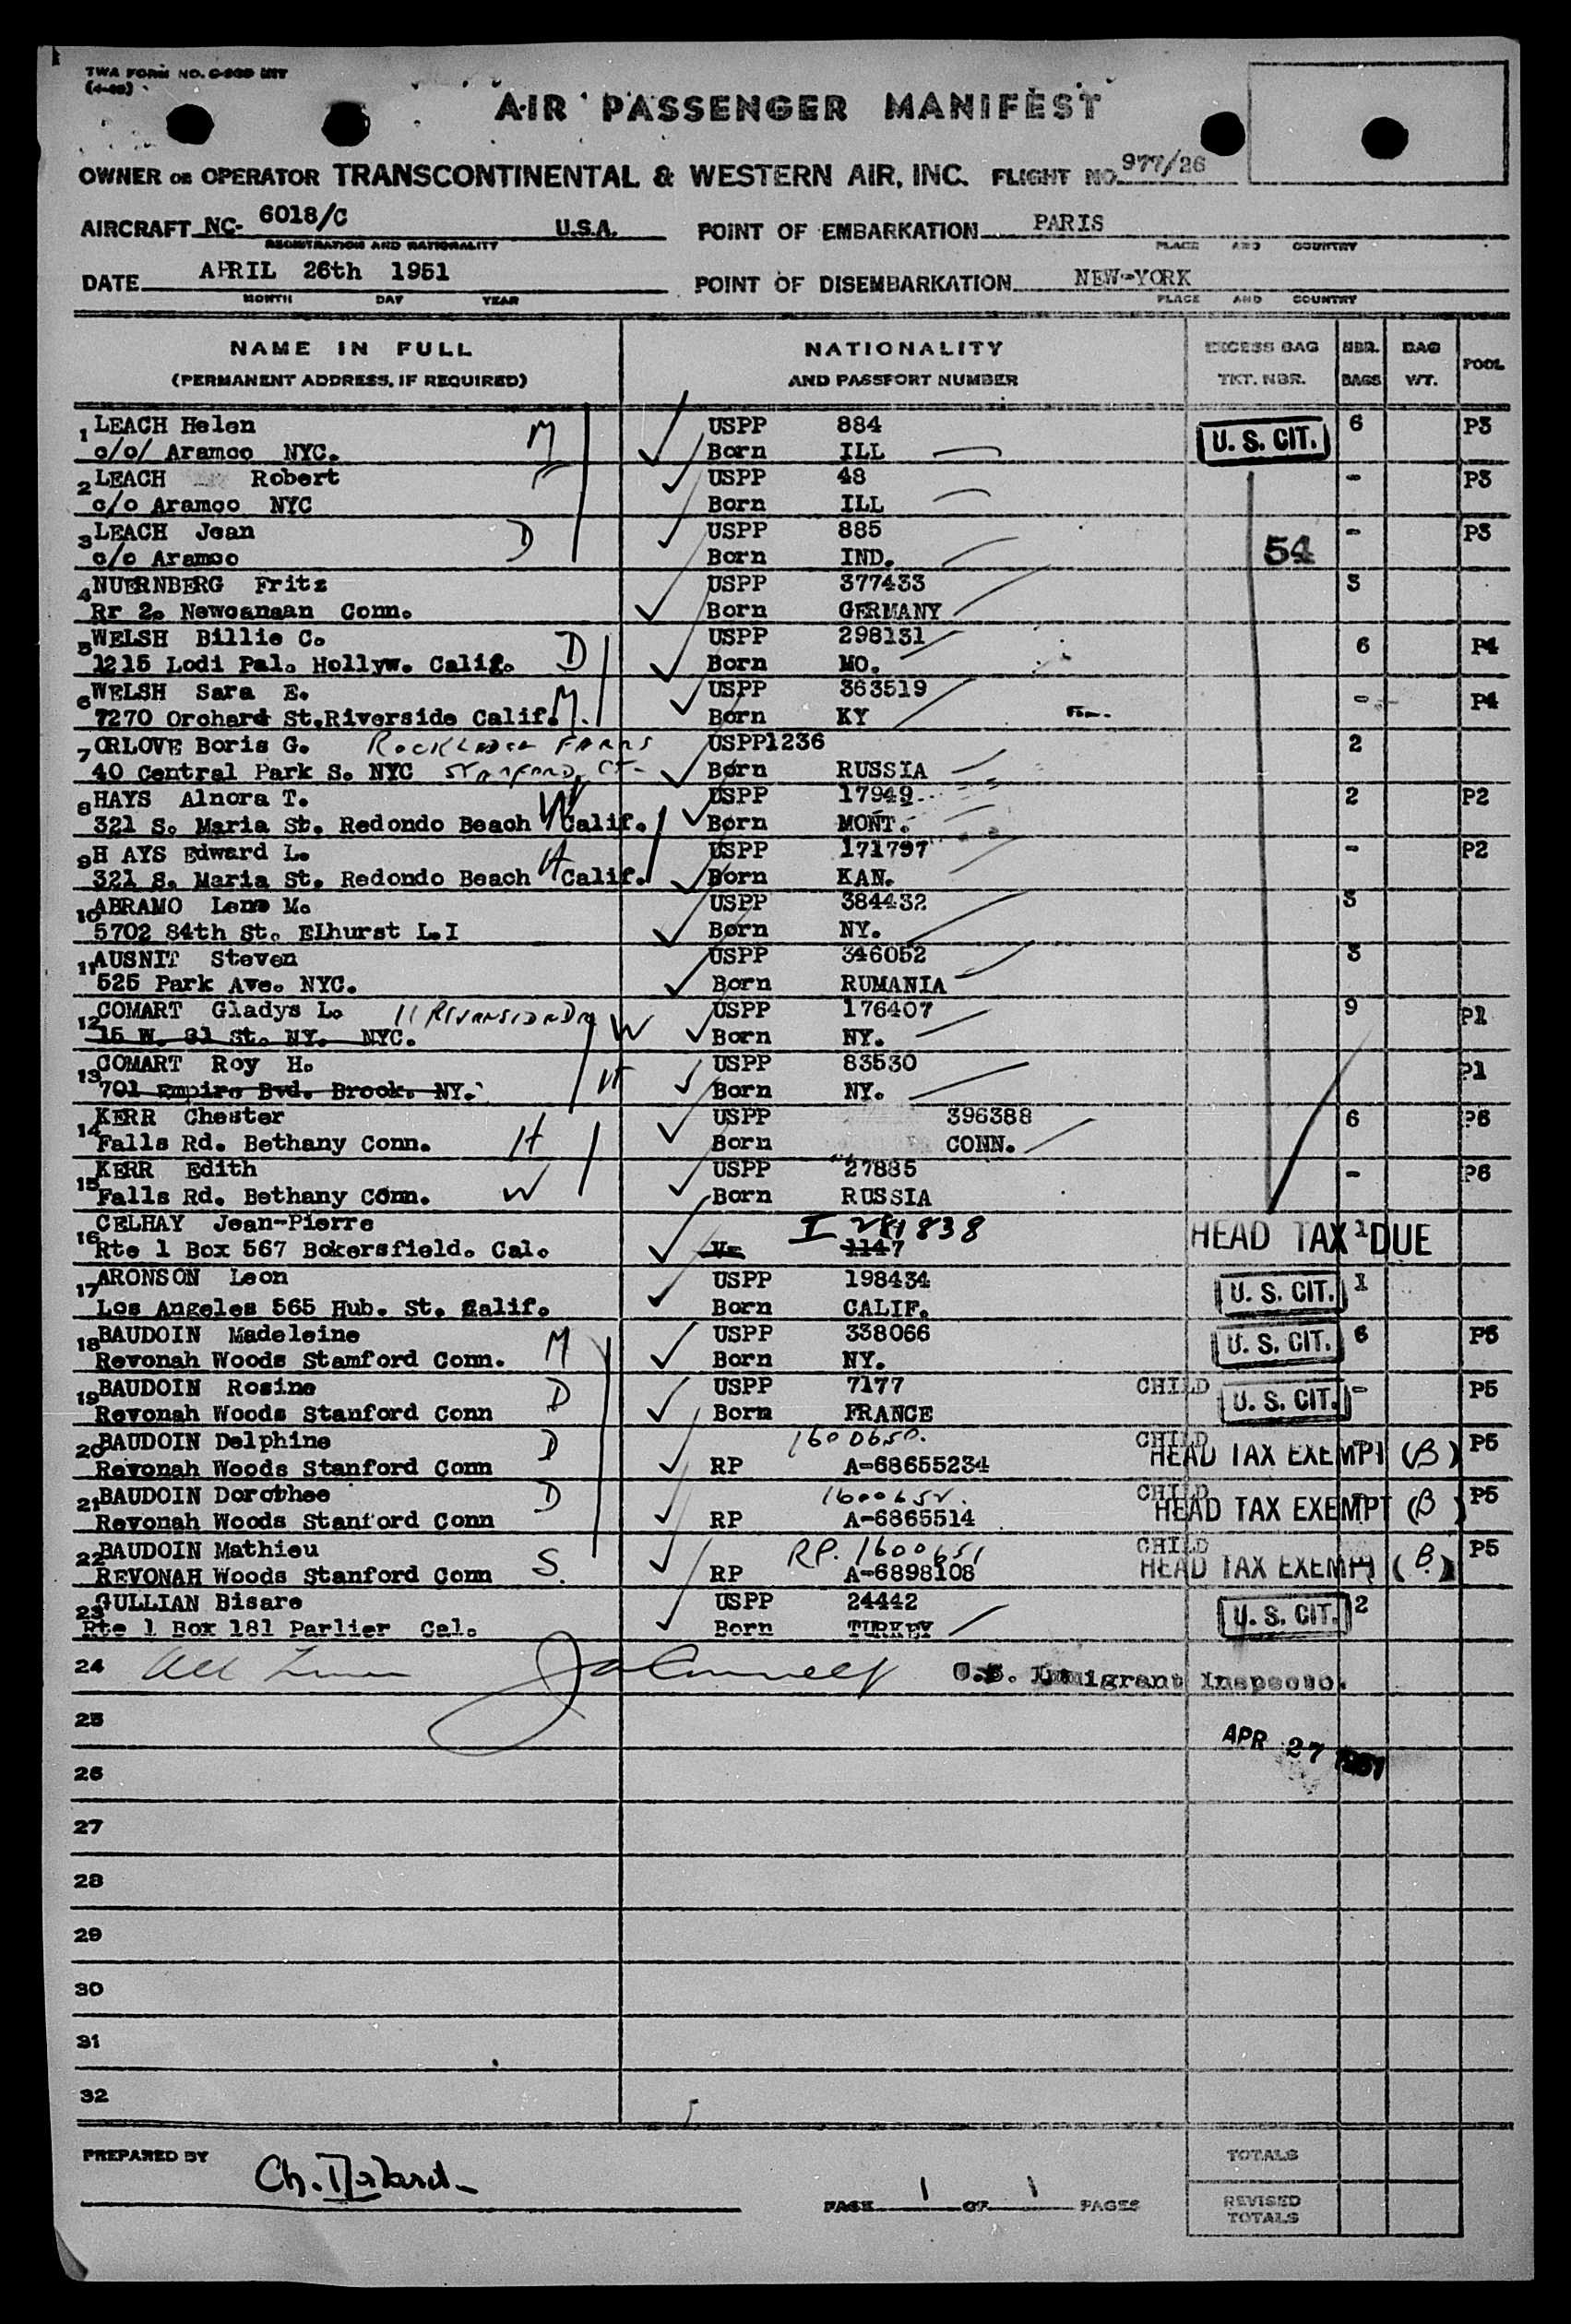 TWA FORM NO.
AIR PASSENGER MANIFEST
OWNER OR OPERATOR TRANSCONTINENTAL & WESTERN AIR, INC. FLIGHT NO. 977/26
AIRCRAFT NC- 6018/C U.S.A. POINT OF EMBARKATION PARIS
REGISTRATION AND NATIONALITY PLACE AND COUNTRY
DATE APRIL 26th 1951 POINT OF DISEMBARKATION NEW-YORK
MONTH DAY YEAR PLACE AND COUNTRY
NAME IN FULL NATIONALITY EXCESS BAG NBR. BAG POOL
(PERMANENT ADDRESS, IF REQUIRED) AND PASSPORT NUMBER TKT. NBR. BAGS WT.
1 LEACH Helen M USPP 884 U. S. CIT. 6 P3
c/o/ Aramco NYC. Born ILL
2 LEACH Robert USPP 48 - P3
c/o Aramco NYC Born ILL
3 LEACH Jean D USPP 885 54 - P3
c/o Aramco Born IND.
4 NUERNBERG Fritz USPP 377433 3
Rr 2. Newcanaan Conn. Born GERMANY
5 WELSH Billie C. D USPP 298131 6 P4
1215 Lodi Pal. Hollyw. Calif. Born MO.
6 WELSH Sara E. M USPP 363519 - P4
7270 Orchard St.Riverside Calif. Born KY
7 ORLOVE Boris G. USPP1236 2
40 Central Park S. NYC Born RUSSIA
8 HAYS Alnora T. W USPP 17949 2 P2
321 S. Maria St. Redondo Beach Calif. Born MONT.
9 H AYS Edward L. H USPP 171797 - P2
321 S. Maria St. Redondo Beach Calif. Born KAN.
10 ABRAMO M. USPP 384432 3
5702 84th St. Elhurst L.I Born NY.
11 AUSNIT Steven USPP 346052 3
525 Park Ave. NYC. Born RUMANIA
12 COMART Gladys L. 11 USPP 176407 9 P1
15 W. 81 St. NY. NYC. W Born NY.
13 COMART Roy H. H USPP 83530 P1
701 Empire Bvd. Brook. NY. Born NY.
14 KERR Chester H USPP 396388 6 P6
Falls Rd. Bethany Conn. Born CONN.
15 KERR Edith W USPP 27885 - P6
Falls Rd. Bethany Conn. Born RUSSIA
16 CELHAY Jean-Pierre I 281838 HEAD TAX DUE 1
Rte 1 Box 567 Bokersfield. Cal. 1147
17 ARONSON Leon USPP 198434 U. S. CIT. 1
Los Angeles 565 Hub. St. Calif. Born CALIF.
18 BAUDOIN Madeleine M USPP 338066 U. S. CIT. 6 P5
Revonah Woods Stamford Conn. Born NY.
19 BAUDOIN Rosine D USPP 7177 CHILD U. S. CIT. - P5
Revonah Woods Stanford Conn Born FRANCE
20 BAUDOIN Delphine D 1600650. CHILD HEAD TAX EXEMPT (B) P5
Revonah Woods Stanford Conn RP A-68655234
21 BAUDOIN Dorothee D 1600652. CHILD HEAD TAX EXEMPT (B) P5
Revonah Woods Stanford Conn RP A-6865514
22 BAUDOIN Mathieu S. RP. 1600651 CHILD HEAD TAX EXEMPT (B) P5
REVONAH Woods Stanford Conn RP A-6898108
23 GULLIAN Bisare USPP 24442 U. S. CIT. 2
Rte 1 Box 181 Parlier Cal. Born TURKEY
24 U.S. Immigrant Inspector.
25 APR 27 1951
26
27
28
29
30
31
32
PREPARED BY TOTALS
PAGE 1 OF 1 PAGES REVISED TOTALS